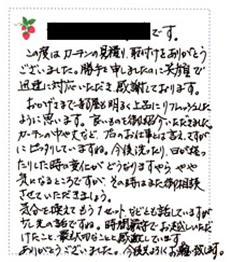 です。
この度はカーテンの見積り、取付けをありがとう
ございました。勝手を申しましたのに笑顔で
迅速に対応いただき、感謝しております。
おかげさまで部屋も明るく上品にリフレッシュした
ように思います。良いものを御紹介いただきました。
カーテンのサイズなど、プロのお仕事とは言え、さすが
にピッタリしていますね。今後、洗ったり、日が経っ
たりした時の変化がどうなりますやら やや
気になるところですが、その時はまた御相談
させていただきましょう。
気分を換えて もう1セットなどとも話していますが
少し先の話ですね。時間厳守でお越しいただ
けたこと、最大切なことと感謝しています。
ありがとうございました。今後ともよろしくお願い致します。